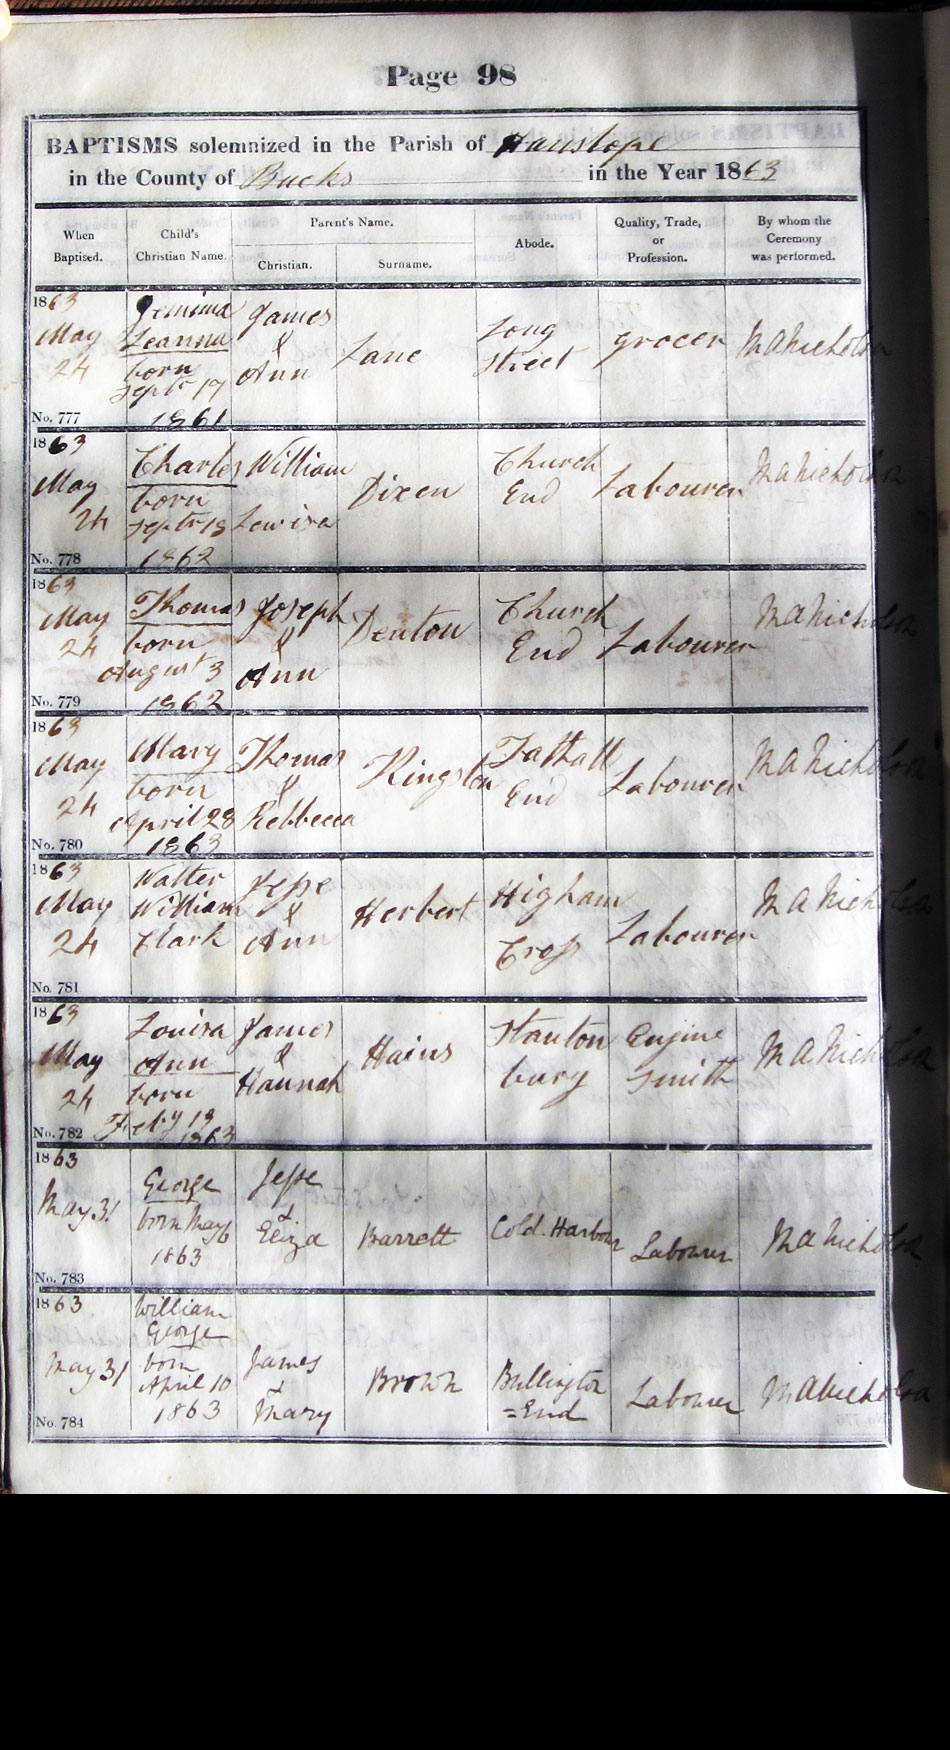 Page 98
BAPTISMS solemnized in the Parish of Hanslope
in the County of Bucks in the Year 1863
When Baptised. Child's Christian Name. Parent's Name. Christian. Surname. Abode. Quality, Trade, or Profession. By whom the Ceremony was performed.
1863
May
24
No. 777
Jemima
Leanna
born
Septr 17
1861
James
&
Ann
Lane
Long
Street
grocer
M A Nicholson
1863
May
24
No. 778
Charles
born
Septr 18
1862
William
Lewisa
Dixen
Church
End
Labourer
M A Nicholson
1863
May
24
No. 779
Thomas
born
August 3
1862
Joseph
&
Ann
Denton
Church
End
Labourer
M A Nicholson
1863
May
24
No. 780
Mary
born
April 28
1863
Thomas
&
Rebbecca
Kingston
Tathall
End
Labourer
M A Nicholson
1863
May
24
No. 781
Walter
William
Clark
Jesse
&
Ann
Herbert
Higham
Cross
Labourer
M A Nicholson
1863
May
24
No. 782
Louisa
Ann
born
Feby 19
1863
James
&
Hannah
Hains
Stanton
bury
Engine
Smith
M A Nicholson
1863
May 31
No. 783
George
born May 6
1863
Jesse
&
Eliza
Barrett
Cold. Harbour
Labourer
M A Nicholson
1863
May 31
No. 784
William
George
born
April 10
1863
James
&
Mary
Brown
Bullington
=End
Labourer
M A Nicholson